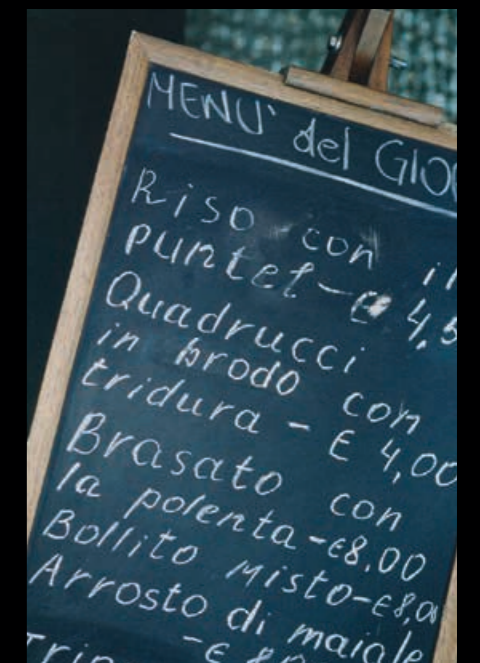 MENU' del GIO
Riso con il
puntel-€ 4,5
Quadrucci
in brodo con
tridura - € 4,00
Brasato con
la polenta-€8.00
Bollito Misto-€8,00
Arrosto di maiale
-€ 8,0
Trip